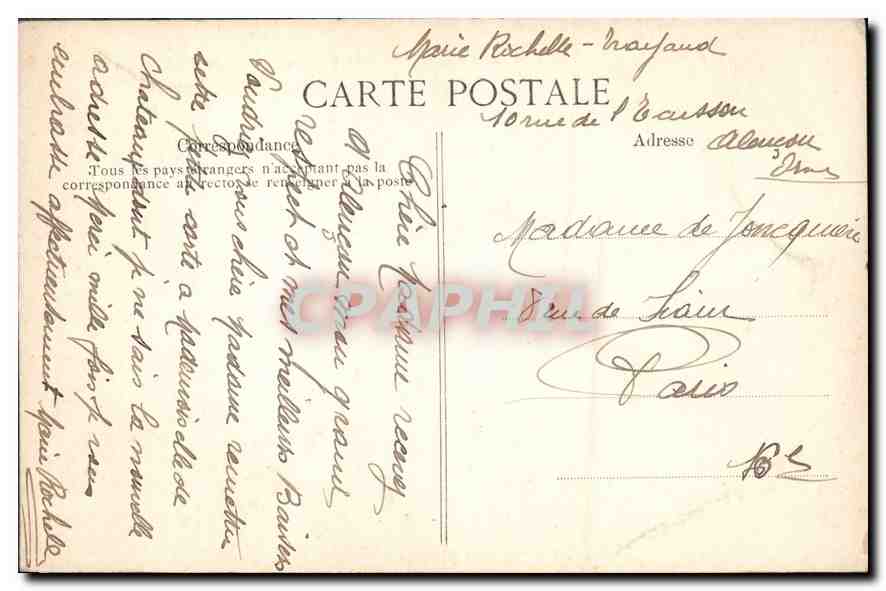 Marie Rochelle - 
CARTE POSTALE
10 rue de l'
Correspondance
Adresse
Alençon
Orne
Tous les pays étrangers n'acceptant pas la
correspondance au recto, se renseigner à la poste
Madame de Joncquière
8 rue de
Paris
16e
Chère Madame recevez
d'Alençon mon grand
respect et mes meilleurs Baisers
Voudrez vous chère Madame remettre
cette petite carte à Mademoiselle de
Chateaux dont je ne sais la nouvelle
adresse merci mille fois je vous
embrasse affectueusement Marie Rochelle
CPAPHIL